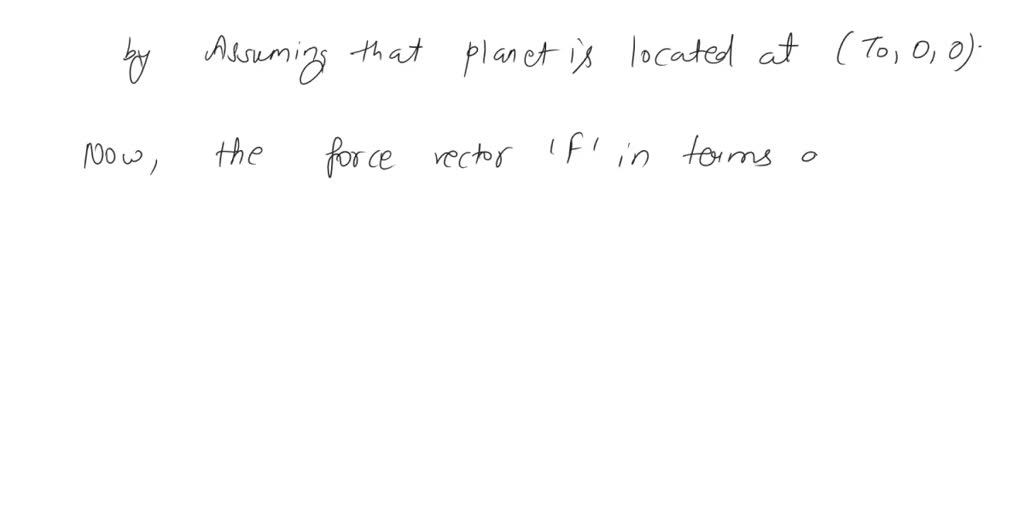 by Assuming that planet is located at (To, 0, 0).
Now, the force vector 'F' in terms o